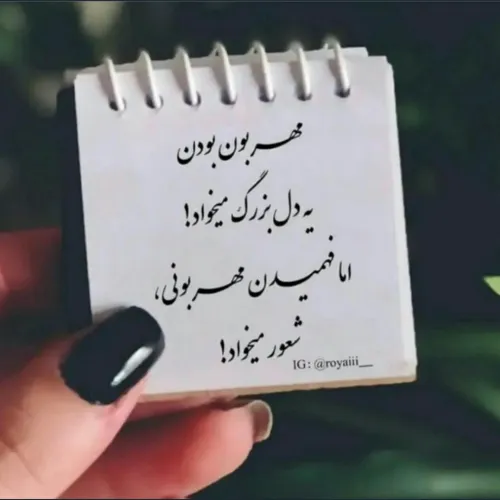 مهربون بودن
یه دل بزرگ میخواد!
اما فهمیدن مهربونی،
شعور میخواد!
IG: @royaiii__